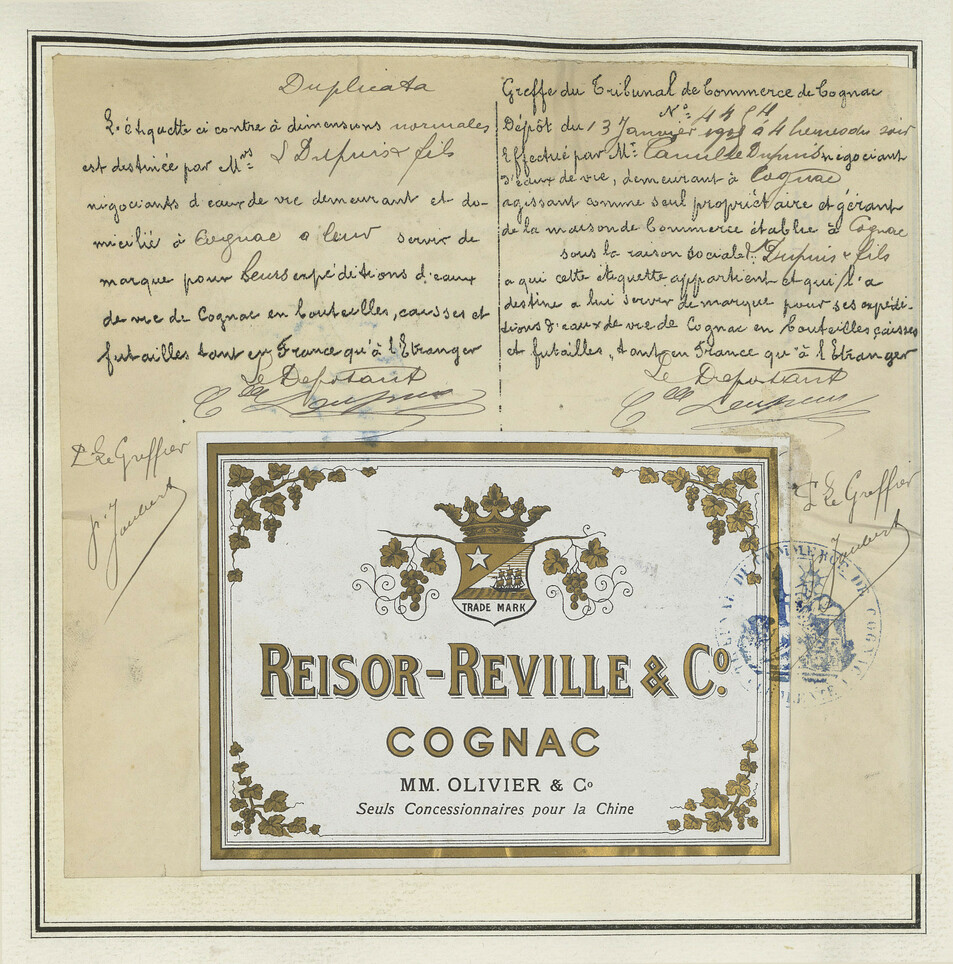 Duplicata
L'étiquette ci contre à dimensions normales
est destinée par Mrs J Dupuis & fils
négociants d'eaux de vie demeurant et do-
micilié à Cognac a leur servir de
marque pour leurs expéditions d'eaux
de vie de Cognac en bouteilles, caisses et
futailles tant en France qu'à l'Etranger
Le Deposant
Clle Dupuis
P. Le Greffier
Joubert
Greffe du Tribunal de Commerce de Cognac
No. 4454
Dépôt du 13 Janvier à 4 heures du soir
Effectué par Mr. Camille Dupuis négociant
d'eaux de vie, demeurant à Cognac
agissant comme seul propriétaire et gérant
de la maison de Commerce établie à Cognac
sous la raison sociale J. Dupuis & fils
a qui cette étiquette appartient et qui l'a
destine a lui servir de marque pour ses expédi-
tions d'eaux de vie de Cognac en bouteilles caisses
et futailles, tant en France qu'à l'Etranger
Le Deposant
Clle Dupuis
P. Le Greffier
Joubert
DE COMMERCE DE COGNAC
TRADE MARK
REISOR-REVILLE & Co.
COGNAC
MM. OLIVIER & Co
Seuls Concessionnaires pour la Chine